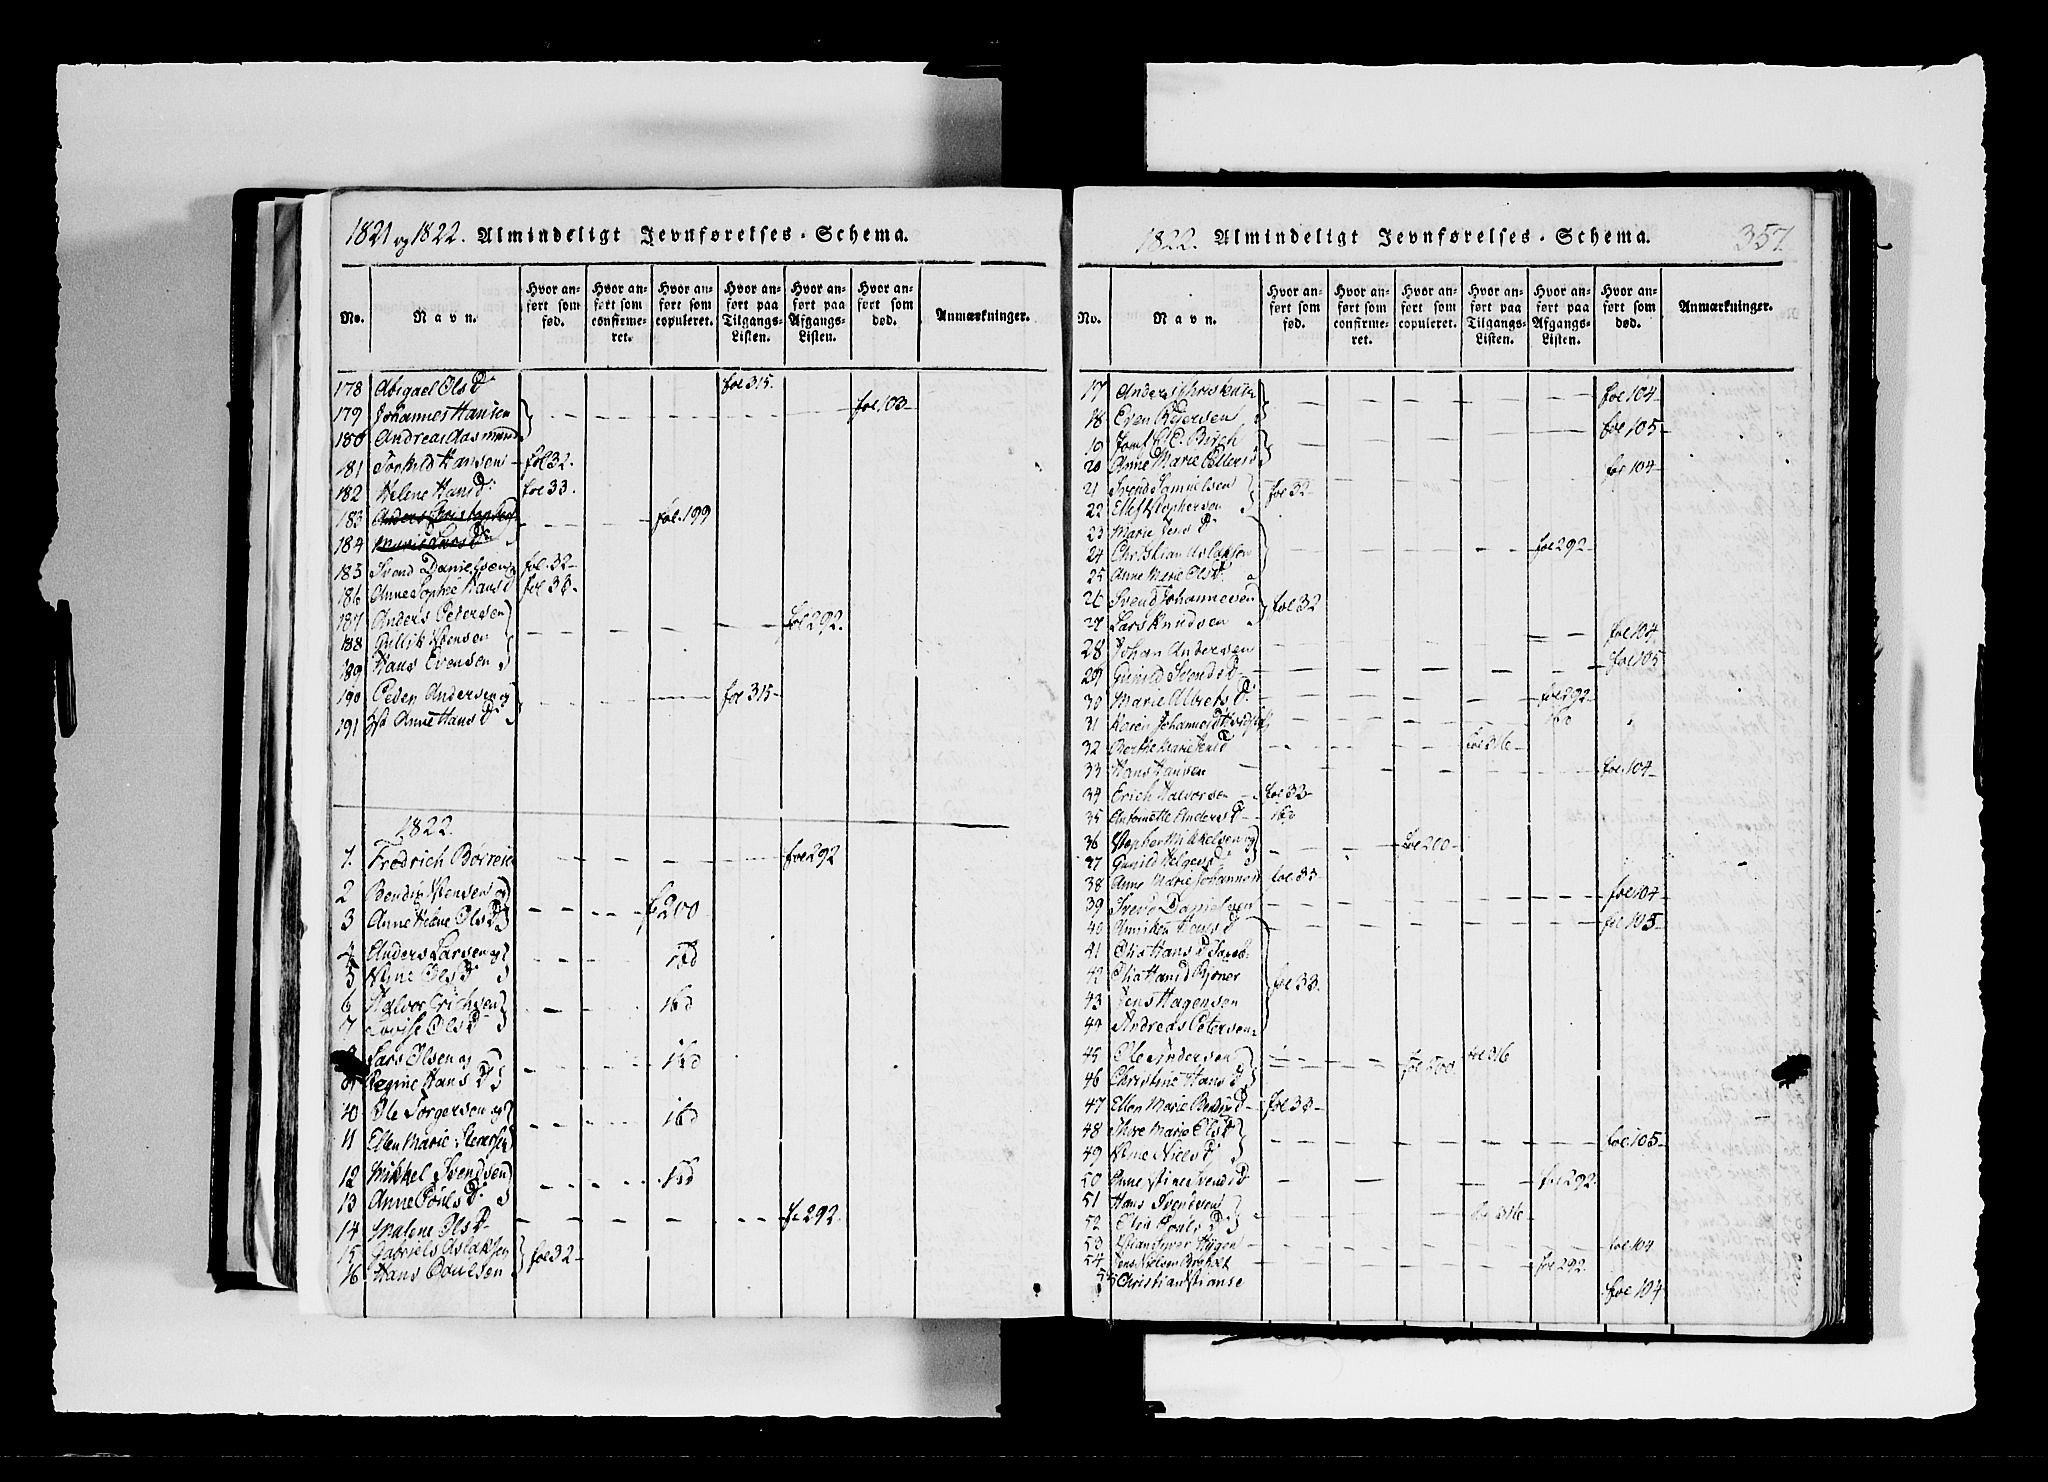 1821 og 1822. Almindeligt Jevnførelses-Schema.
No. Navn. Hvor anført som fød. Hvor anført som confirmeret. Hvor anført som copuleret. Hvor anført paa Tilgangs-Listen. Hvor anført paa Afgangs-Listen. Hvor anført som død. Anmærkninger.
178 Abigael Ols D. fol 315.
179 Johannes Hansen fol. 103
180 Andreas Aasmund
181 Torkild Hansen fol 32.
182 Helene Hans D. fol 33.
183 Anders Christophers fol. 199
184 Marie Lars D.
185 Svend Danielsen fol. 32
186 Anne Sophie Hans fol 33.
187 Anders Petersen fol 292.
188 Gullik
189 Hans Evensen
190 Peder Andersen og fol 315
191 Anne Hans D.
1822.
1. Fredrich fol 292
2 og
3 Anne Helene Ols D. f 200
4 Anders Larsen og ibd
5 Ols D.
6 Halvor Erichsen ibd
7 Ols D.
Lars Olsen og ibd
Hans D.
10 Ole Torgersen og ibd
11 Ellen Marie
12 Mikkel Svendsen ibd
13 Anne Pouls D.
14 Malene Ols D. f 292.
15 Gabriel Aslaksen fol 32
16 Hans Poulsen
1822. Almindeligt Jevnførelses-Schema. 357
No. Navn. Hvor anført som fød. Hvor anført som confirmeret. Hvor anført som copuleret. Hvor anført paa Tilgangs-Listen. Hvor anført paa Afgangs-Listen. Hvor anført som død. Anmærkninger.
17 Anders fol 104
18 Even Pedersen
19 Birch fol 105
20 Anne Marie fol 104
21 Svend Samuelsen fol 32
22 Ellef
23 Marie Jens D.
24 Christian Aslaksen fol 292
25 Anne Marie Ols D.
26 Svend Johannesen fol 32
27 Lars Knudsen
28 Johan Andersen fol 104
29 Gunild Svends D. fol 105
30 Marie Albrets D. fol 292
31 Karen
32 Berthe Marie Jens D. fol 316
33 Hans Hansen fol. 104
34 Erich Halvorsen fol 33
35 Antonette Anders D.
36 Mikkelsen og fol 200
37 Gunild Helges D.
38 Anne Marie Johannes fol 33
39 Svend Danielsen fol 104
40 fol 105
41 Hans D.
42 fol 33.
43 Jens Hagensen
44 Andreas Petersen
45 Ole Andersen fol 200 fol 316
46 Christine Hans D.
47 Ellen Marie fol 33
48 Marie Ols D. fol. 105
49 Niels D.
50 Anne Stine Svends D. fol 292
51 Hans Svendsen fol 316
52 Pouls D.
53 Hygen fol 104
54 fol 292
55 Christian fol 104